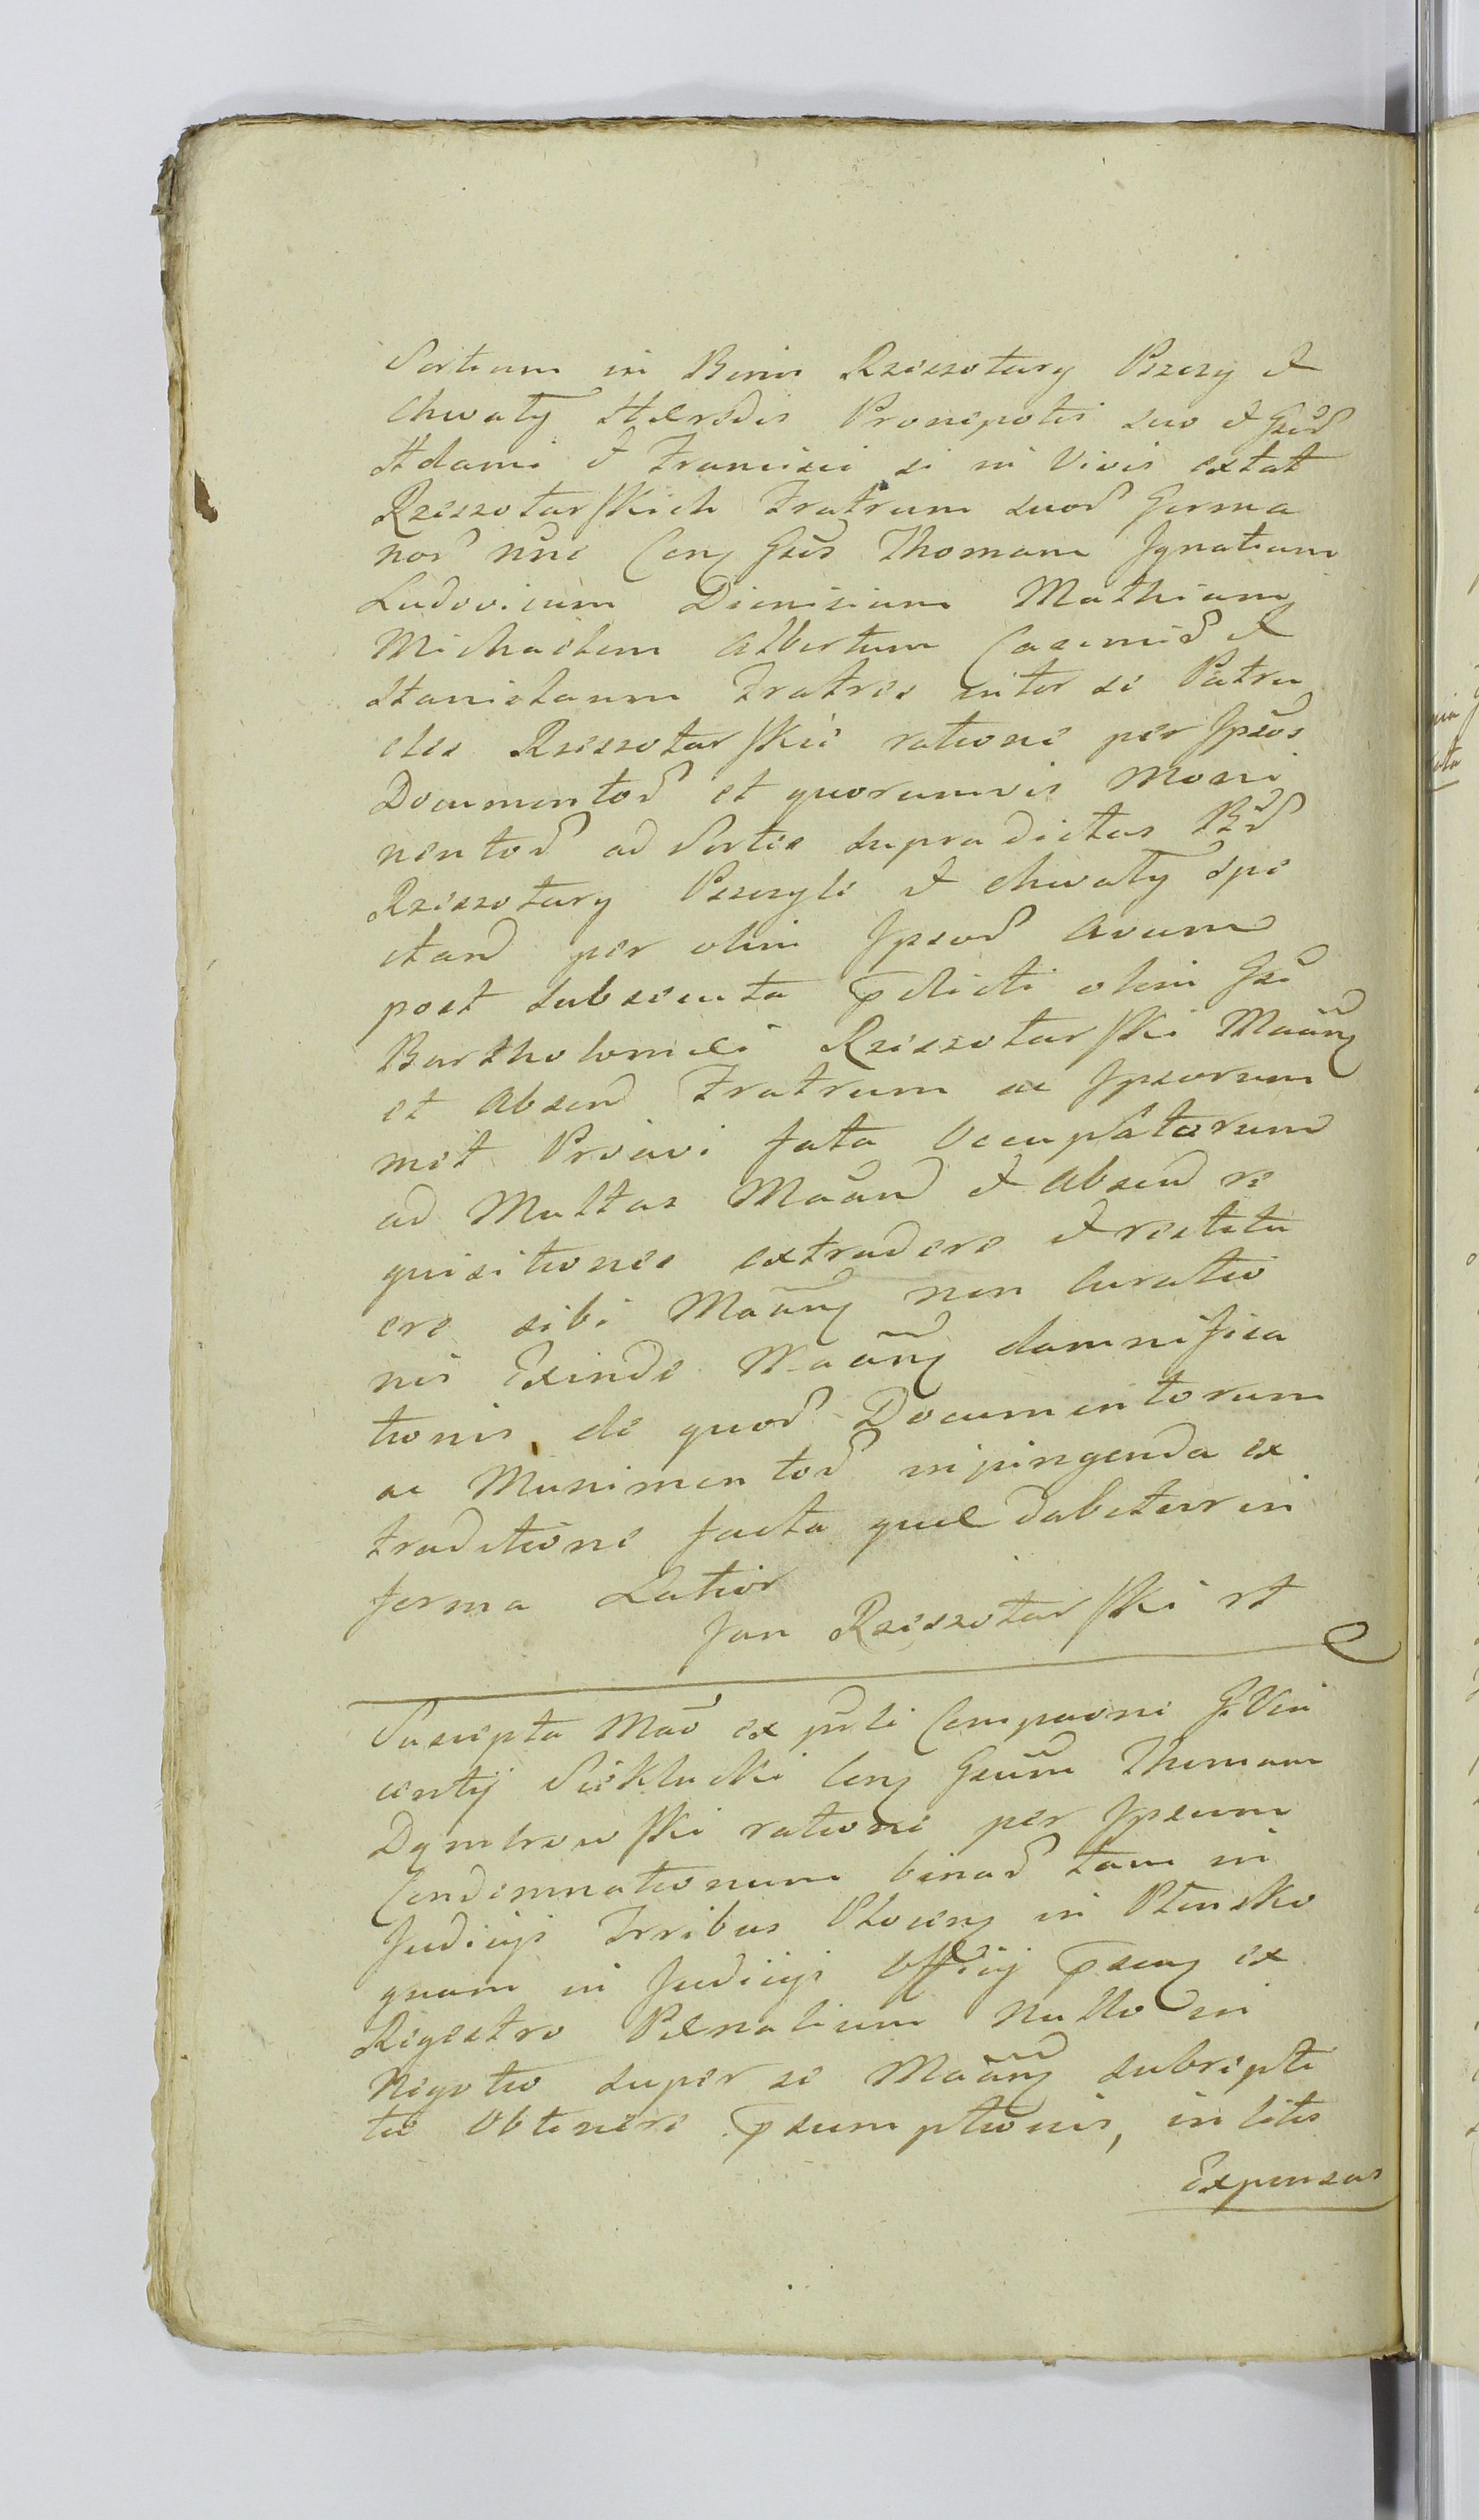 Sortium in Bonis Rzeszotary Pszczy et
Chwały Hæredis Pronepotis suo et Gsd
Adami et Francisci si in Vivis extat
Rzeszotarskich Fratrum suod Germa
nod nunc Con Gsos Thomam Ignatium
Ludovicum Dionisium Mathiam
Michaelem Albertum Casimid et
Stanislaum Fratres inter se Patru
eles Rzeszotarskie ratione per Ipsos
Documentod et quorumvis Moni
mentod ad Sortes supradictas Bd
Rzeszotary Pszczyle et Chwały Spe
ctand per olim Ipsod Avum
post subsecuta pdicti olim Gsi
Bartholomei Rzeszotarski
et Absend Fratrum ac Ipsorum
met Proavi fata occupatorum
ad Multas et Absend re
quisitiones extradere et restitu
ere sibi non Curatio
nis Exinde damnifica
tionis de quod Documentorum
ac Munimentod inpingenda ex
traditione facta quæ dabitur in
forma Latior
Jan Rzeszotarski rt
Suscepta ex Comparni G. Vin
centij Sieklucki Con Gsum Thomam
Dymbrowski ratione per Ipsum
Condemnationum binad tam in
Judicijs Trribus Plocen in Płonsko
quam in Judicijs Officij psen ex
Regestro Pœnalium Nullo in
Negotio super se subrepti
tie Obtinere psumptionis, in litis
Expensas